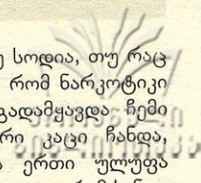 სოდია, თუ რაც
რომ ნარკოტიკი
გადამყავდა ჩემი
რი კაცი ჩანდა,
ერთი ულუფა